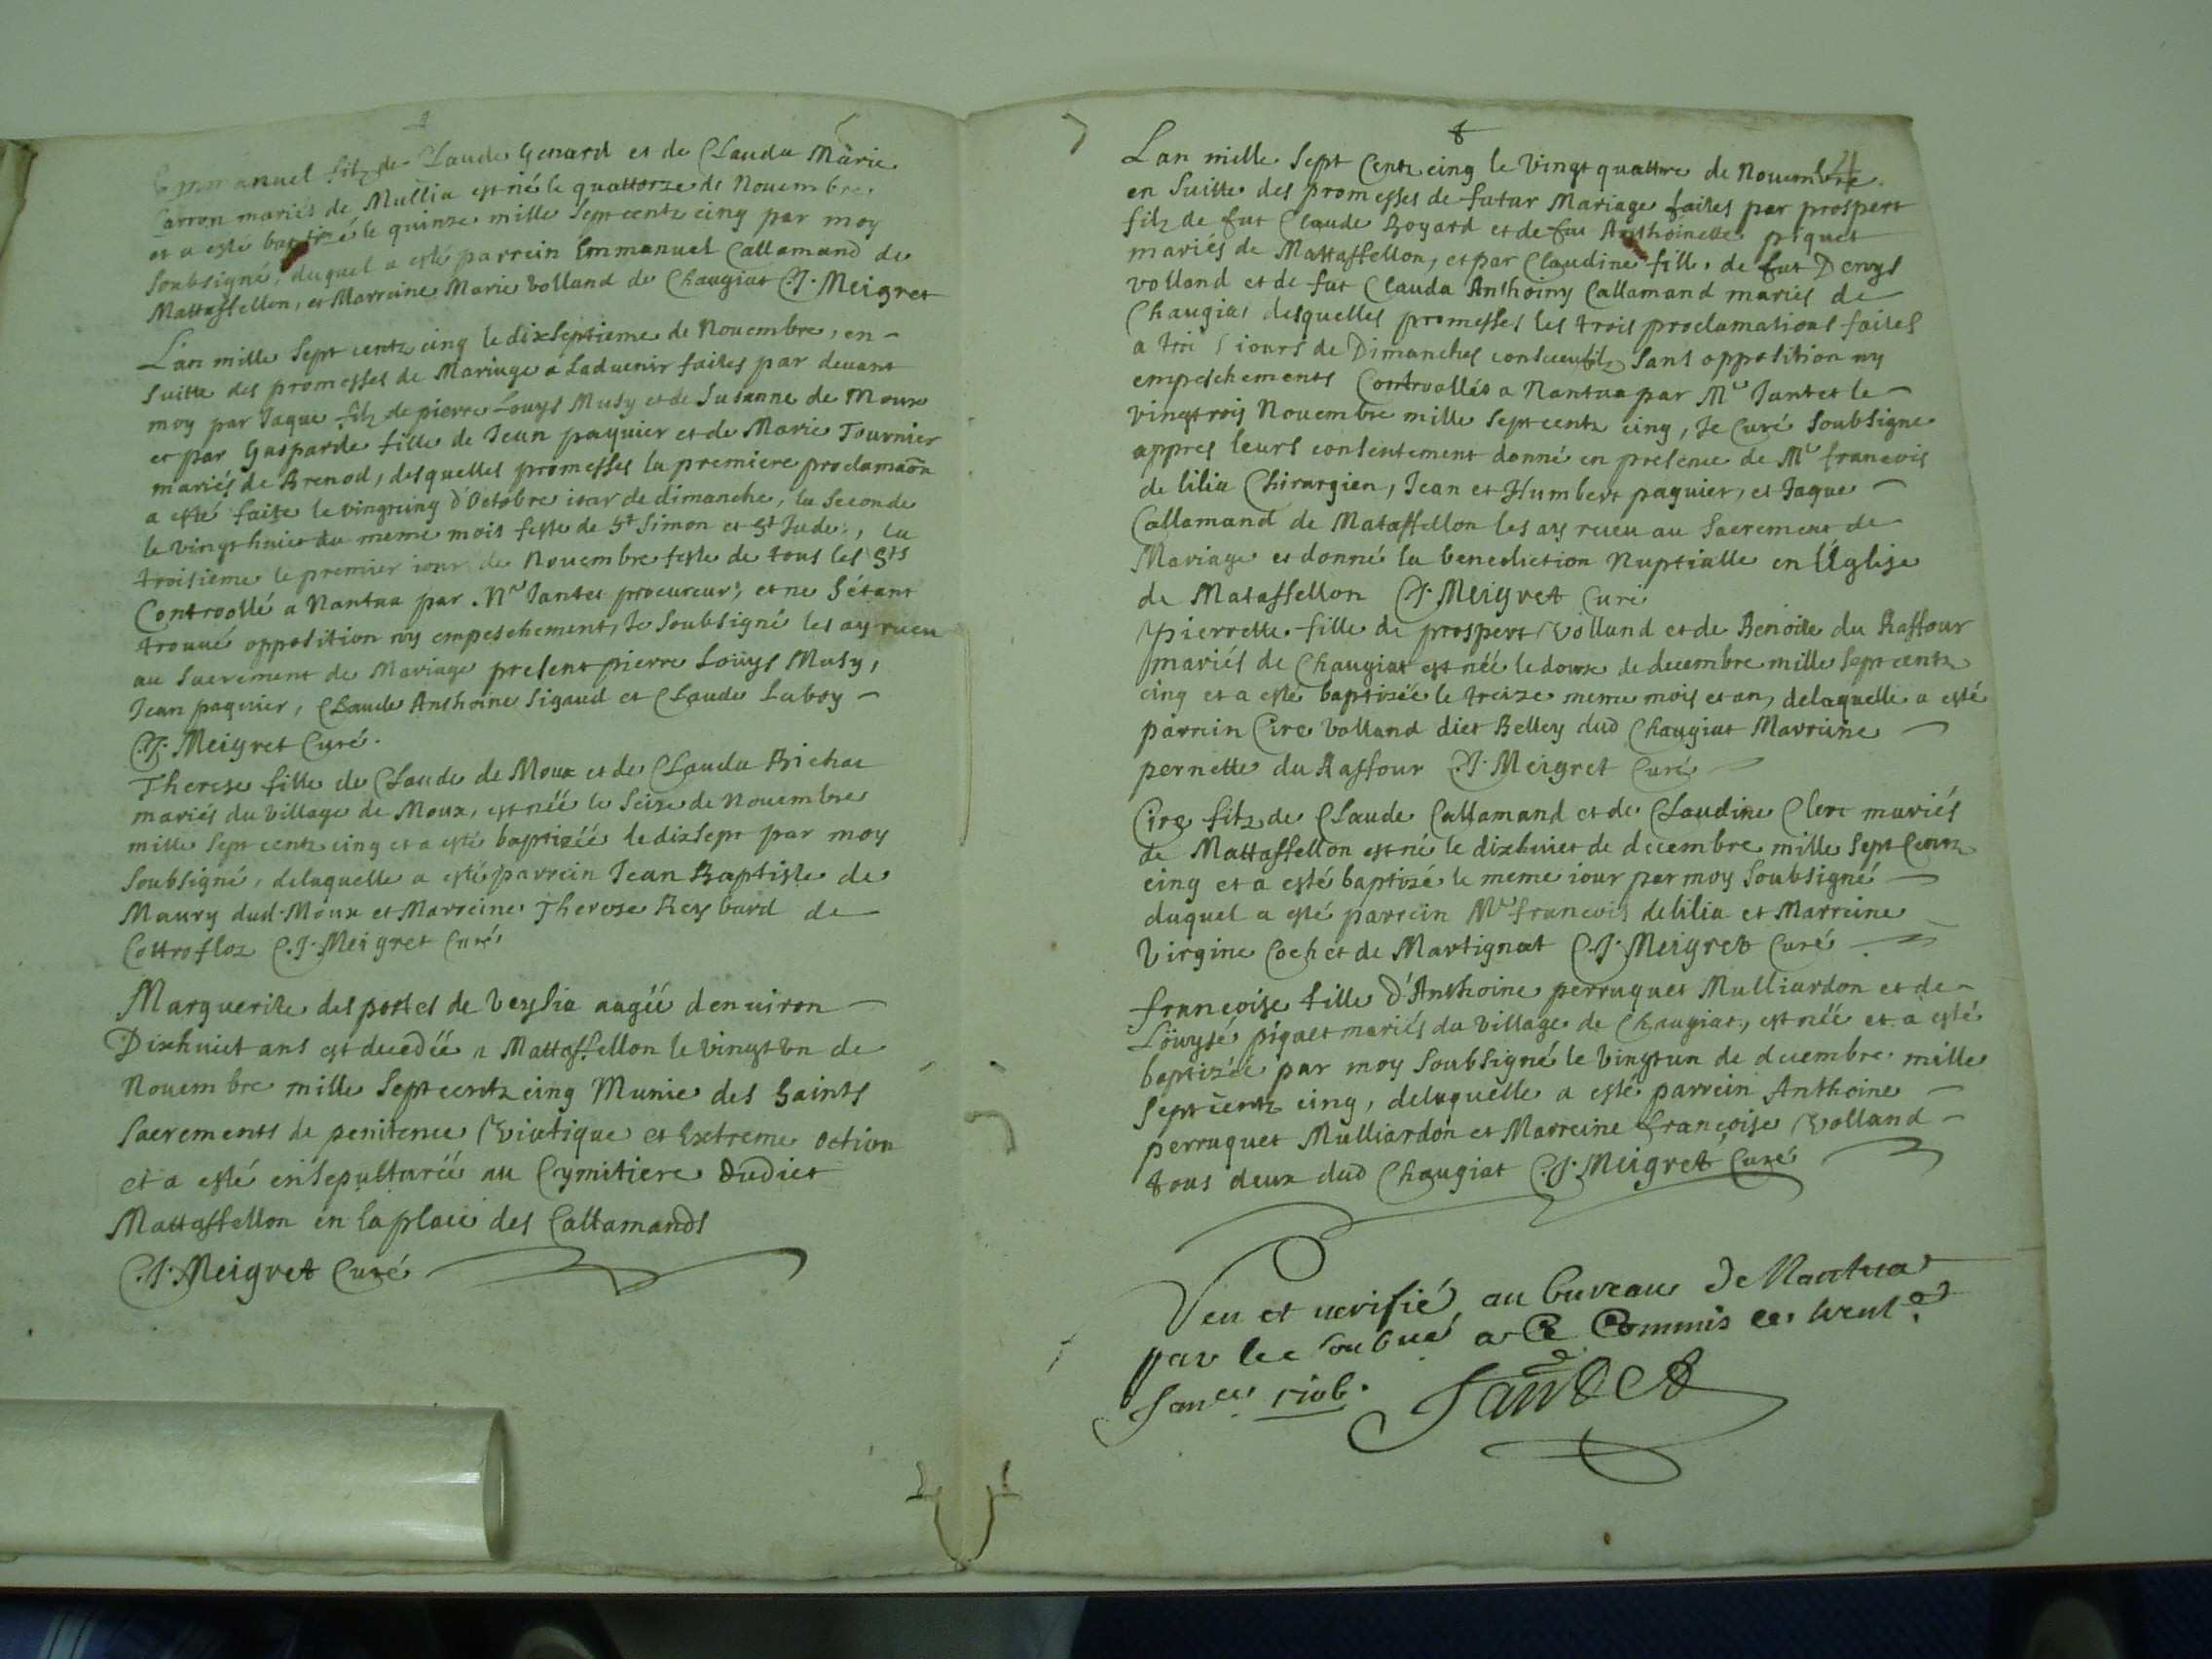 Emmanuel filz de Claude Genard et de Clauda Marie
Carron mariés de Mullia est né le quattorze de Nouembre
et a esté baptizé le quinze mille Sept centz cinq par moy
Soubsigné, duquel a esté parrein Emmanuel Callamand de
Mattaffellon, et Marreine Marie Volland de Chaugiat C.J. Meigret
L'an mille Sept centz cinq le dixseptieme de Nouembre, en
Suitte des promesses de Mariage a Laduenir faites par deuant
moy par Jaque filz de pierre Louys Musy et de Susanne de Moux
et par Gasparde fille de Jean paquier et de Marie Tournier
mariés de Brenod, desquelles promesses la premiere proclamaōn
a esté faite le vingtcinq d'Octobre iour de dimanche, la Seconde
le vingthuict du meme mois feste de St Simon et St Jude, la
troisieme le premier iour de Nouembre feste de tous les Sts
Controollé a Nantua par Mre Jantet procureur, et ne S'étant
trouué opposition ny empeschement, Je Soubsigné les ay receu
au Sacrement de Mariage present pierre Louys Musy,
Jean paquier, Claude Anthoine Sigaud et Claude Laboy
C.J. Meigret Curé.
Therese fille de Claude de Moux et de Clauda Richar
mariés du Village de Moux, est néé le Seize de Nouembre
mille Sept centz cinq et a esté baptizéé le dixsept par moy
Soubsigné, delaquelle a esté parrein Jean Baptiste de
Maury dud. Moux et Marreine Therese Reybard de
Cottrofloz C.J. Meigret Curé
Marguerite des portes de Veysia aagéé d'enuiron
Dixhuict ans est decedéé a Mattaffellon le vingt vn de
Nouembre mille Sept centz cinq Munie des Saints
Sacrements de penitence Viatique et Extreme Oction
et a esté enSepulturéé au Cymitiere dudict
Mattaffellon en la place des Callamands
C.J. Meigret Curé
4
L'an mille Sept Centz cinq le Vingt quattre de Nouembre
en Suitte des promesses de futur Mariage faites par prospert
filz de fut Claude Boyard et de fut Anthoinette piquet
mariés de Mattaffellon, et par Claudine fille de fut Denys
volland et de fut Clauda Anthoiny Callamand mariés de
Chaugiat desquelles promesses les trois proclamations faites
a trois iours de Dimanches consecutifz Sans opposition ny
empeschements Controollés a Nantua par Mre Jantet le
vingtrois Nouembre mille Sept centz cinq, Je Curé Soubsigné
appres leurs consentement donné en presence de Mre francois
de lilia Chirurgien, Jean et Humbert paquier, et Jaque
Callamand de Mataffellon les ay receu au Sacrement de
Mariage et donné la benediction Nuptialle en l'Église
de Mataffellon C.J. Meigret Curé
Pierrette fille de prospert Volland et de Benoite du Raffour
mariés de Chaugiat est néé le douze de decembre mille Sept centz
cinq et a esté baptizéé le treize meme mois et an, delaquelle a esté
parrein Cire Volland dict Belley dud Chaugiat Marreine
pernette du Raffour C.J. Meigret Curé
Cire filz de Claude Callamand et de Claudine Clerc mariés
de Mattaffellon est né le dixhuict de decembre mille Sept Centz
cinq et a esté baptizé le meme iour par moy Soubsigné
duquel a esté parrein Mre francois de lilia et Marreine
Virgine Cochet de Martignat C.J. Meigret Curé
francoise fille d'Anthoine perruquet Mulliardon et de
Louyse piquet mariés du village de Chaugiat, est néé et a esté
baptizéé par moy Soubsigné le Vingtun de decembre mille
Sept centz cinq, delaquelle a esté parrein Anthoine
perruquet Mulliardon et Marreine francoise Volland
tous deux dud Chaugiat C.J. Meigret Curé
Veu et verifié au bureau de Nantua
par le Soubné a Ce Commis ce
Janer 1706. Jantet